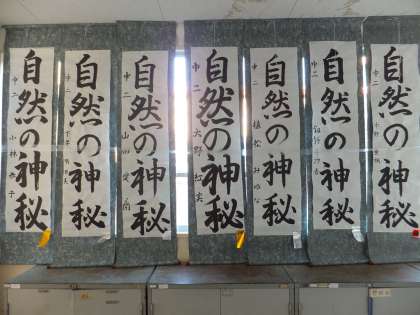 自然の神秘
中二 小林
自然の神秘
自然の神秘
中二 山田
自然の神秘
中二 大野
自然の神秘
中二 植松 みゆな
自然の神秘
中二
自然の神秘
中二